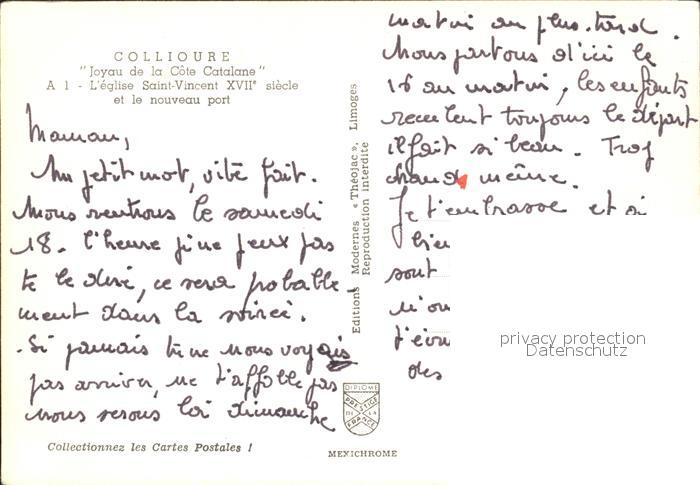 COLLIOURE
"Joyau de la Côte Catalane"
A 1 - L'église Saint-Vincent XVIIe siècle
et le nouveau port
Maman,
Un petit mot, vite fait.
Nous rentrons le samedi
18. l'heure je ne peux pas
te le dire, ce sera probable
ment dans la soirée.
Si jamais tu ne nous voyais
pas arriver, ne t'affolle pas
nous serons là dimanche
Collectionnez les Cartes Postales !
Editions Modernes « Théojac », Limoges
Reproduction interdite
DIPLOME
PRESTIGE
DE LA
FRANCE
MEXICHROME
matin au plus tard.
Nous partons d'ici le
16 au matin, les enfants
reculent toujours le départ
il fait si beau. Trop
chaud même.
Je t'embrasse et si
sont
des
privacy protection
Datenschutz